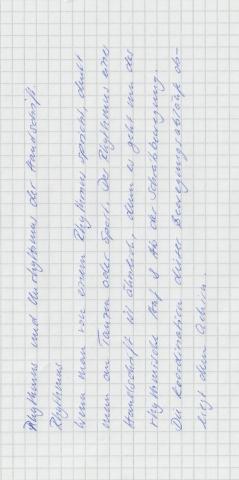 Rhythmus und Unrhythmus der Handschrift.
Rhythmus
Wenn man von einem Rhythmus spricht, denkt
man an Tanzen oder Sport. Der Rhythmus einer
Handschrift ist ähnlich, denn es geht um das
rhythmische der Schreibbewegung.
Die Koordination dieser Bewegungsabläufe ob-
liegt dem Gehirn.